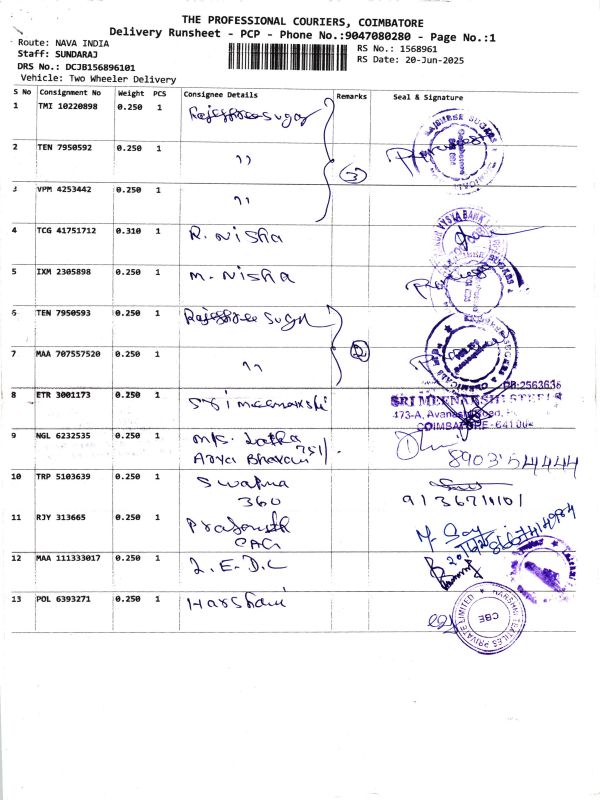 THE PROFESSIONAL COURIERS, COIMBATORE
Delivery Runsheet - PCP - Phone No.:9047080280 - Page No.:1
Route: NAVA INDIA
Staff: SUNDARAJ
DRS No.: DCJB156896101
Vehicle: Two Wheeler Delivery
RS No.: 1568961
RS Date: 20-Jun-2025
S No Consignment No Weight PCS Consignee Details Remarks Seal & Signature
1 TMI 10220898 0.250 1 Rajshree Sugar
2 TEN 7950592 0.250 1 "
3 VPM 4253442 0.250 1 " 3
4 TCG 41751712 0.310 1 R. Nisha
VYSYA BANK
5 IXM 2305898 0.250 1 M. Nisha
6 TEN 7950593 0.250 1 Rajshree Sugar
7 MAA 707557520 0.250 1 " 2
8 ETR 3001173 0.250 1 Sri meenakshi
PB:2563636
SRI MEENAKSHI STEELS
473-A, Avanashi Road,
COIMBATORE-641004
9 NGL 6232535 0.250 1 M/s. Latha
Arya Bhavan 751/.
8903544444
10 TRP 5103639 0.250 1 Swapna
360
9136711101
11 RJY 313665 0.250 1 Prasanth
CAG
20/6/25
12 MAA 111333017 0.250 1 L.E.D.C
13 POL 6393271 0.250 1 Harshani
HARSHNI TEXTILES PRIVATE LIMITED
CBE